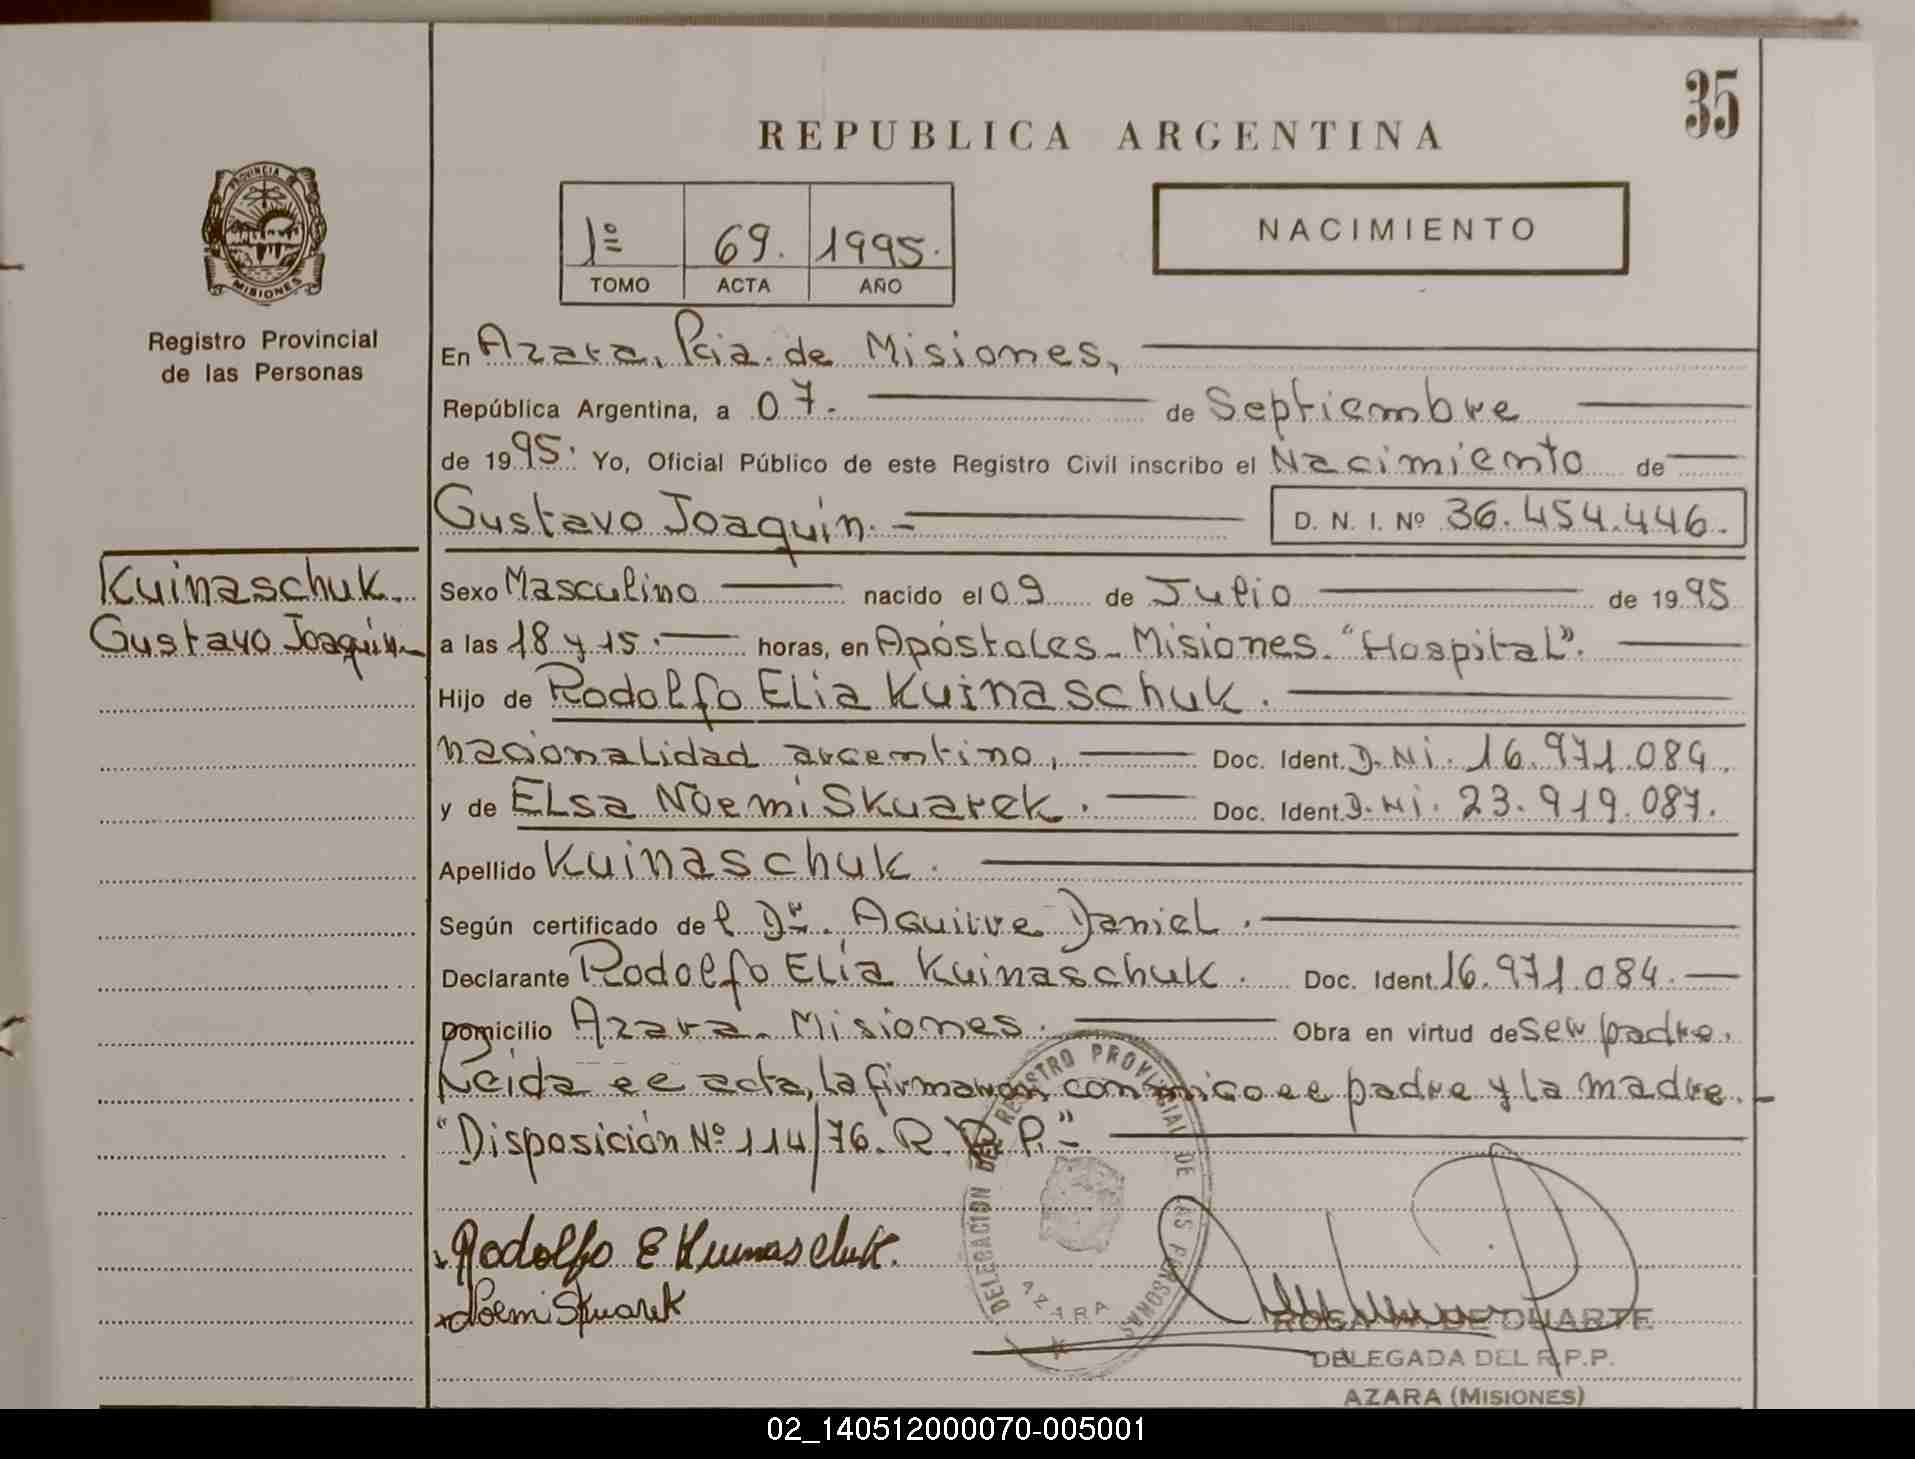 35
REPUBLICA ARGENTINA
PROVINCIA DE
MISIONES
Registro Provincial
de las Personas
1º 69. 1995.
TOMO ACTA AÑO
NACIMIENTO
En Azara, Pcia. de Misiones,
República Argentina, a 07. de Septiembre
de 1995. Yo, Oficial Público de este Registro Civil inscribo el Nacimiento de
Gustavo Joaquín. - D. N. I. Nº 36.454.446.
Kuinaschuk.
Gustavo Joaquín.
Sexo Masculino nacido el 09 de Julio de 1995
a las 18 y 15. horas, en Apóstoles - Misiones. "Hospital".
Hijo de Rodolfo Elia Kuinaschuk.
nacionalidad argentino, Doc. Ident. D.Ni. 16.971.084.
y de Elsa Noemi Skuarek. Doc. Ident. D.Ni. 23.919.087.
Apellido Kuinaschuk.
Según certificado del Dr. Aguirre Daniel.
Declarante Rodolfo Elía Kuinaschuk. Doc. Ident. 16.971.084.
Domicilio Azara - Misiones. Obra en virtud de ser padre.
Leída el acta, la firmaron conmigo el padre y la madre. -
"Disposición Nº 114/76. R. P. P."
Rodolfo E Kuinaschuk.
Noemi Skuarek
DELEGACION DEL REGISTRO PROVINCIAL DE LAS PERSONAS
AZARA
ROSA W. DE DUARTE
DELEGADA DEL R.P.P.
AZARA (MISIONES)
02_140512000070-005001